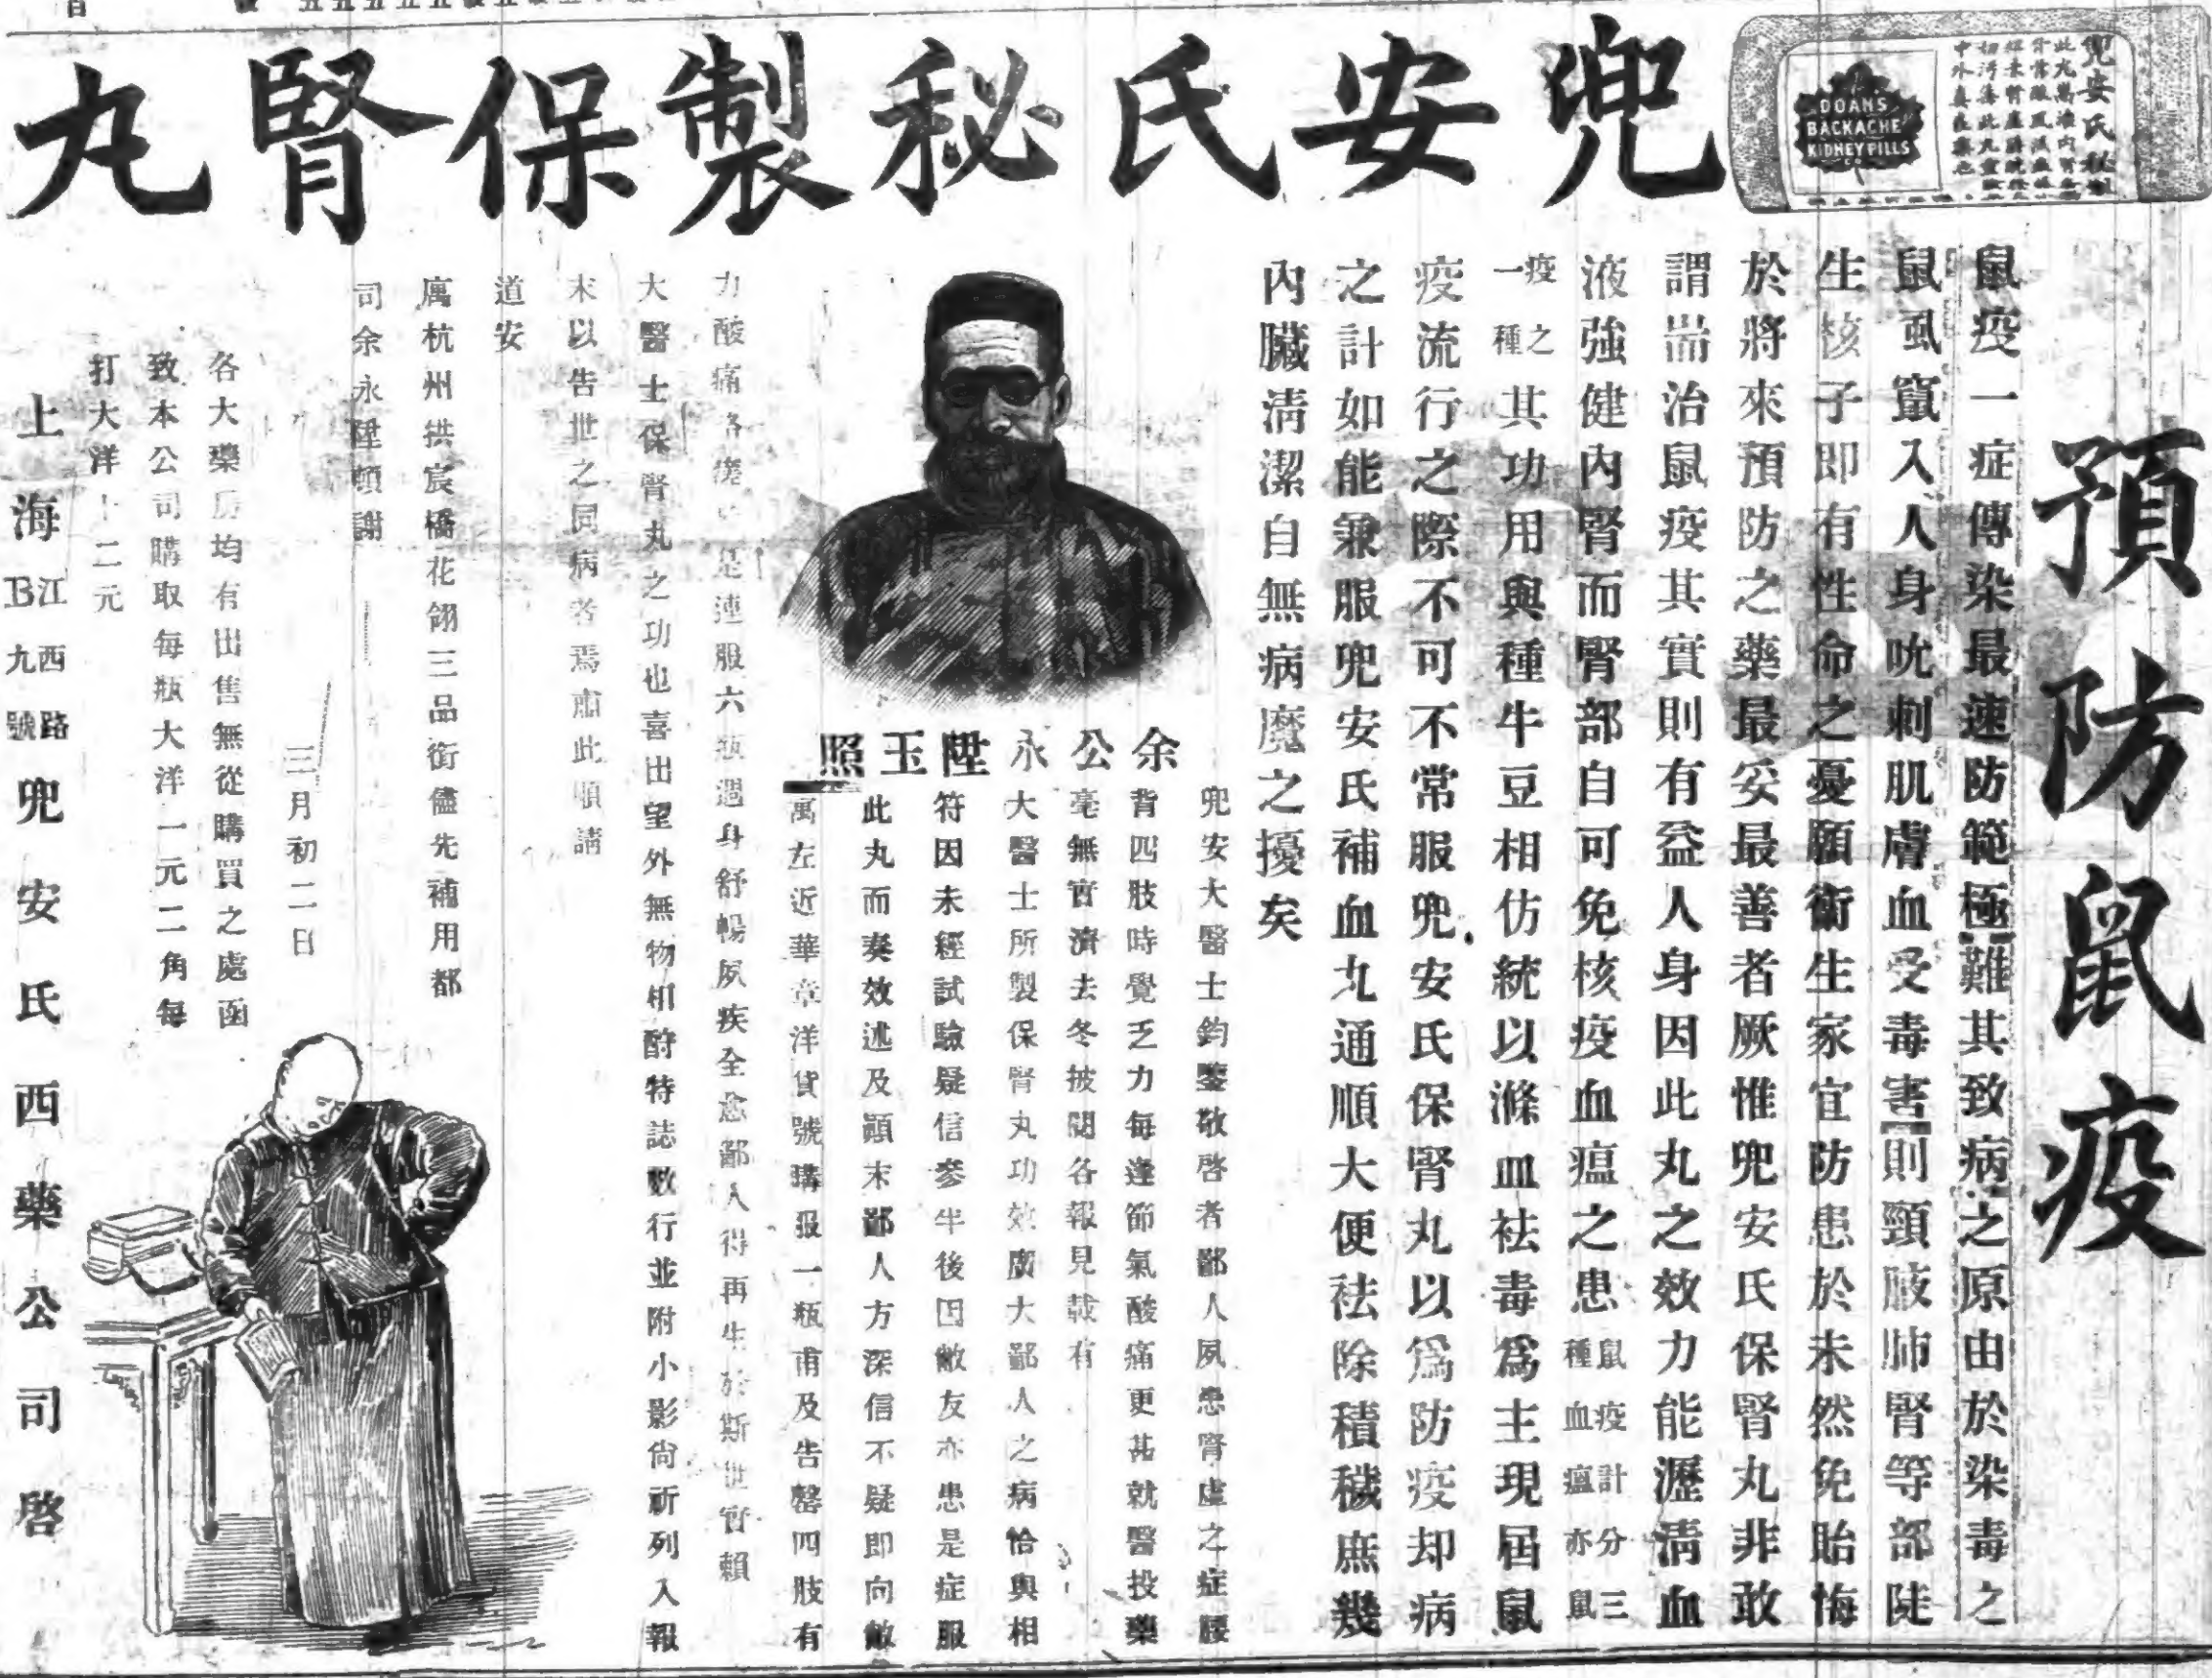 兜安氏秘製保腎丸
DOANS
BACKACHE
KIDNEY PILLS
Co
兜安氏秘製
預防鼠疫
鼠疫一症傳染最速防範極難其致病之原由於染毒之
鼠虱竄入人身吮刺肌膚血受毒害則頸肢肺腎等部陡
生核子即有性命之憂願衞生家宜防患於未然免貽悔
於將來預防之藥最妥最善者厥惟兜安氏保腎丸非敢
謂耑治鼠疫其實則有益人身因此丸之效力能瀝清血
液強健內腎而腎部自可免核疫血瘟之患鼠疫計分三種血瘟亦鼠
疫之一種其功用與種牛豆相仿統以滌血祛毒爲主現屆鼠
疫流行之際不可不常服兜安氏保腎丸以爲防疫却病
之計如能兼服兜安氏補血丸通順大便祛除積穢庶幾
內臟清潔自無病魔之擾矣
余公永陞玉照
兜安大醫士鈞鑒敬啓者鄙人夙患腎虛之症腰
背四肢時覺乏力每逢節氣酸痛更甚就醫投藥
毫無實濟去冬披閱各報見載有
大醫士所製保腎丸功效廣大鄙人之病恰與相
符因未經試驗疑信參半後因敝友亦患是症服
此丸而奏效述及顚末鄙人方深信不疑即向敝
寓左近華章洋貨號購服一瓶甫及告罄四肢有
力酸痛若是連服六瓶週身舒暢夙疾全愈鄙人得再生於斯世實賴
大醫士保腎丸之功也喜出望外無物相酧特誌數行並附小影尙祈列入報
末以告世之同病者焉肅此順請
道安
寓杭州拱宸橋花翎三品銜儘先補用都
司余永陞頓謝
三月初二日
各大藥房均有出售無從購買之處函
致本公司購取每瓶大洋一元二角每
打大洋十二元
上海江西路B九號兜安氏西藥公司啓